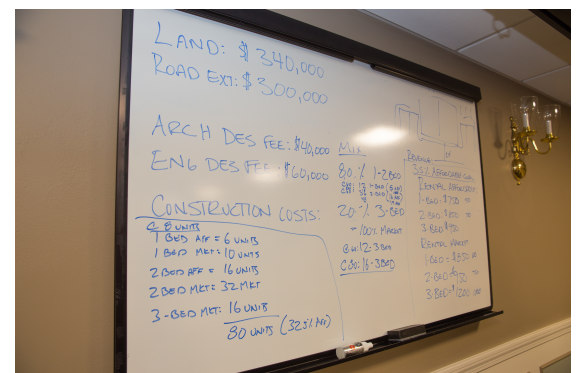 LAND: $340,000
ROAD EXT: $300,000
ARCH DES FEE: $40,000
ENG DES FEE: $60,000
CONSTRUCTION COSTS:
1 BED AFF = 6 UNITS
1 BED MKT = 10 UNITS
2 BED AFF = 16 UNITS
2 BED MKT = 32 MKT
3-BED MKT: 16 UNITS
80 UNITS (32.5% AFF)
MIX
80% 1-2 BED
20% 3-BED
100% MARKET
12-3 BED
C80: 16-3BED
RENTAL AFFORDABLE
1-BED: $700
2-BED:
3-BED
RENTAL MARKET
1-BED = $850
2-BED $950
3-BED = $1200